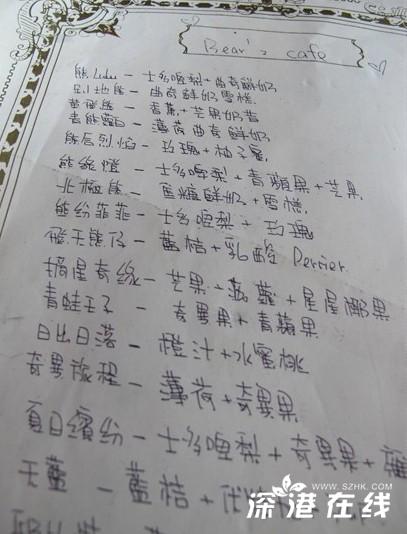 Bear's cafe
熊Lulu — 士多啤梨+曲奇鮮奶
曲奇鮮奶雪糕
香蕉+芒果奶昔
薄荷曲奇鮮奶
熊辰烈焰 — 玫瑰+柚子蜜
熊熊燈 — 士多啤梨+青蘋果+芒果
北極熊 — 黑糖鮮奶+雪糕
熊紛菲菲 — 士多啤梨+玫瑰
飛天熊仔 — 藍桔+乳酸 Perrier
摘星奇緣 — 芒果+菠蘿+星星椰果
青蛙王子 — 奇異果+青蘋果
日出日落 — 橙汁+水蜜桃
奇異旅程 — 薄荷+奇異果
夏日繽紛 — 士多啤梨+奇異果+
天藍 — 藍桔+
WWW.SZHK.COM
深港在线